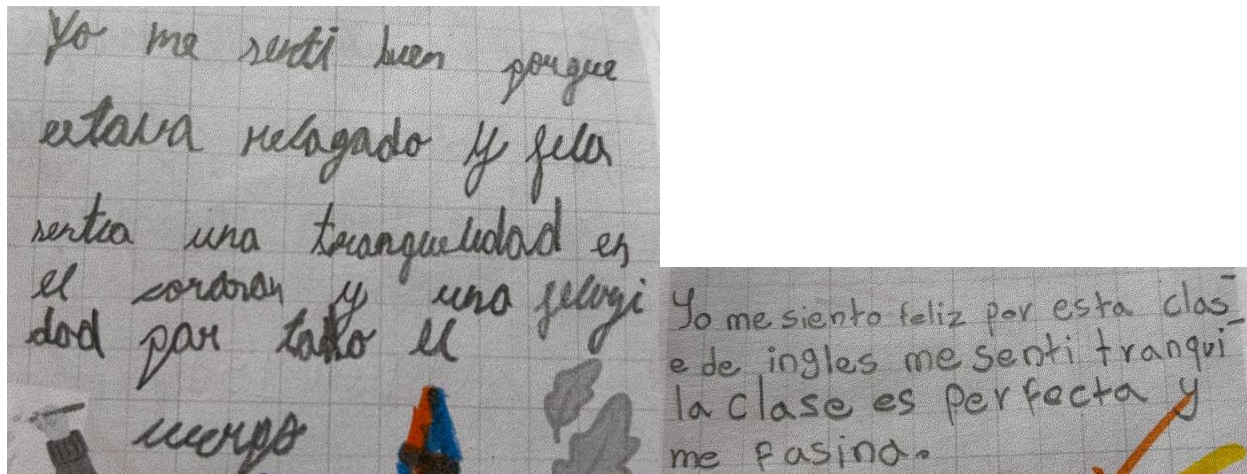 Yo me senti buen porque
estava relagado y feliz
sentia una tranquelidad en
el corazon y una felugi
dad por todo el
cuerpo
Yo me siento feliz por esta clas-
e de ingles me senti tranqui-
la clase es perfecta y
me fasina.